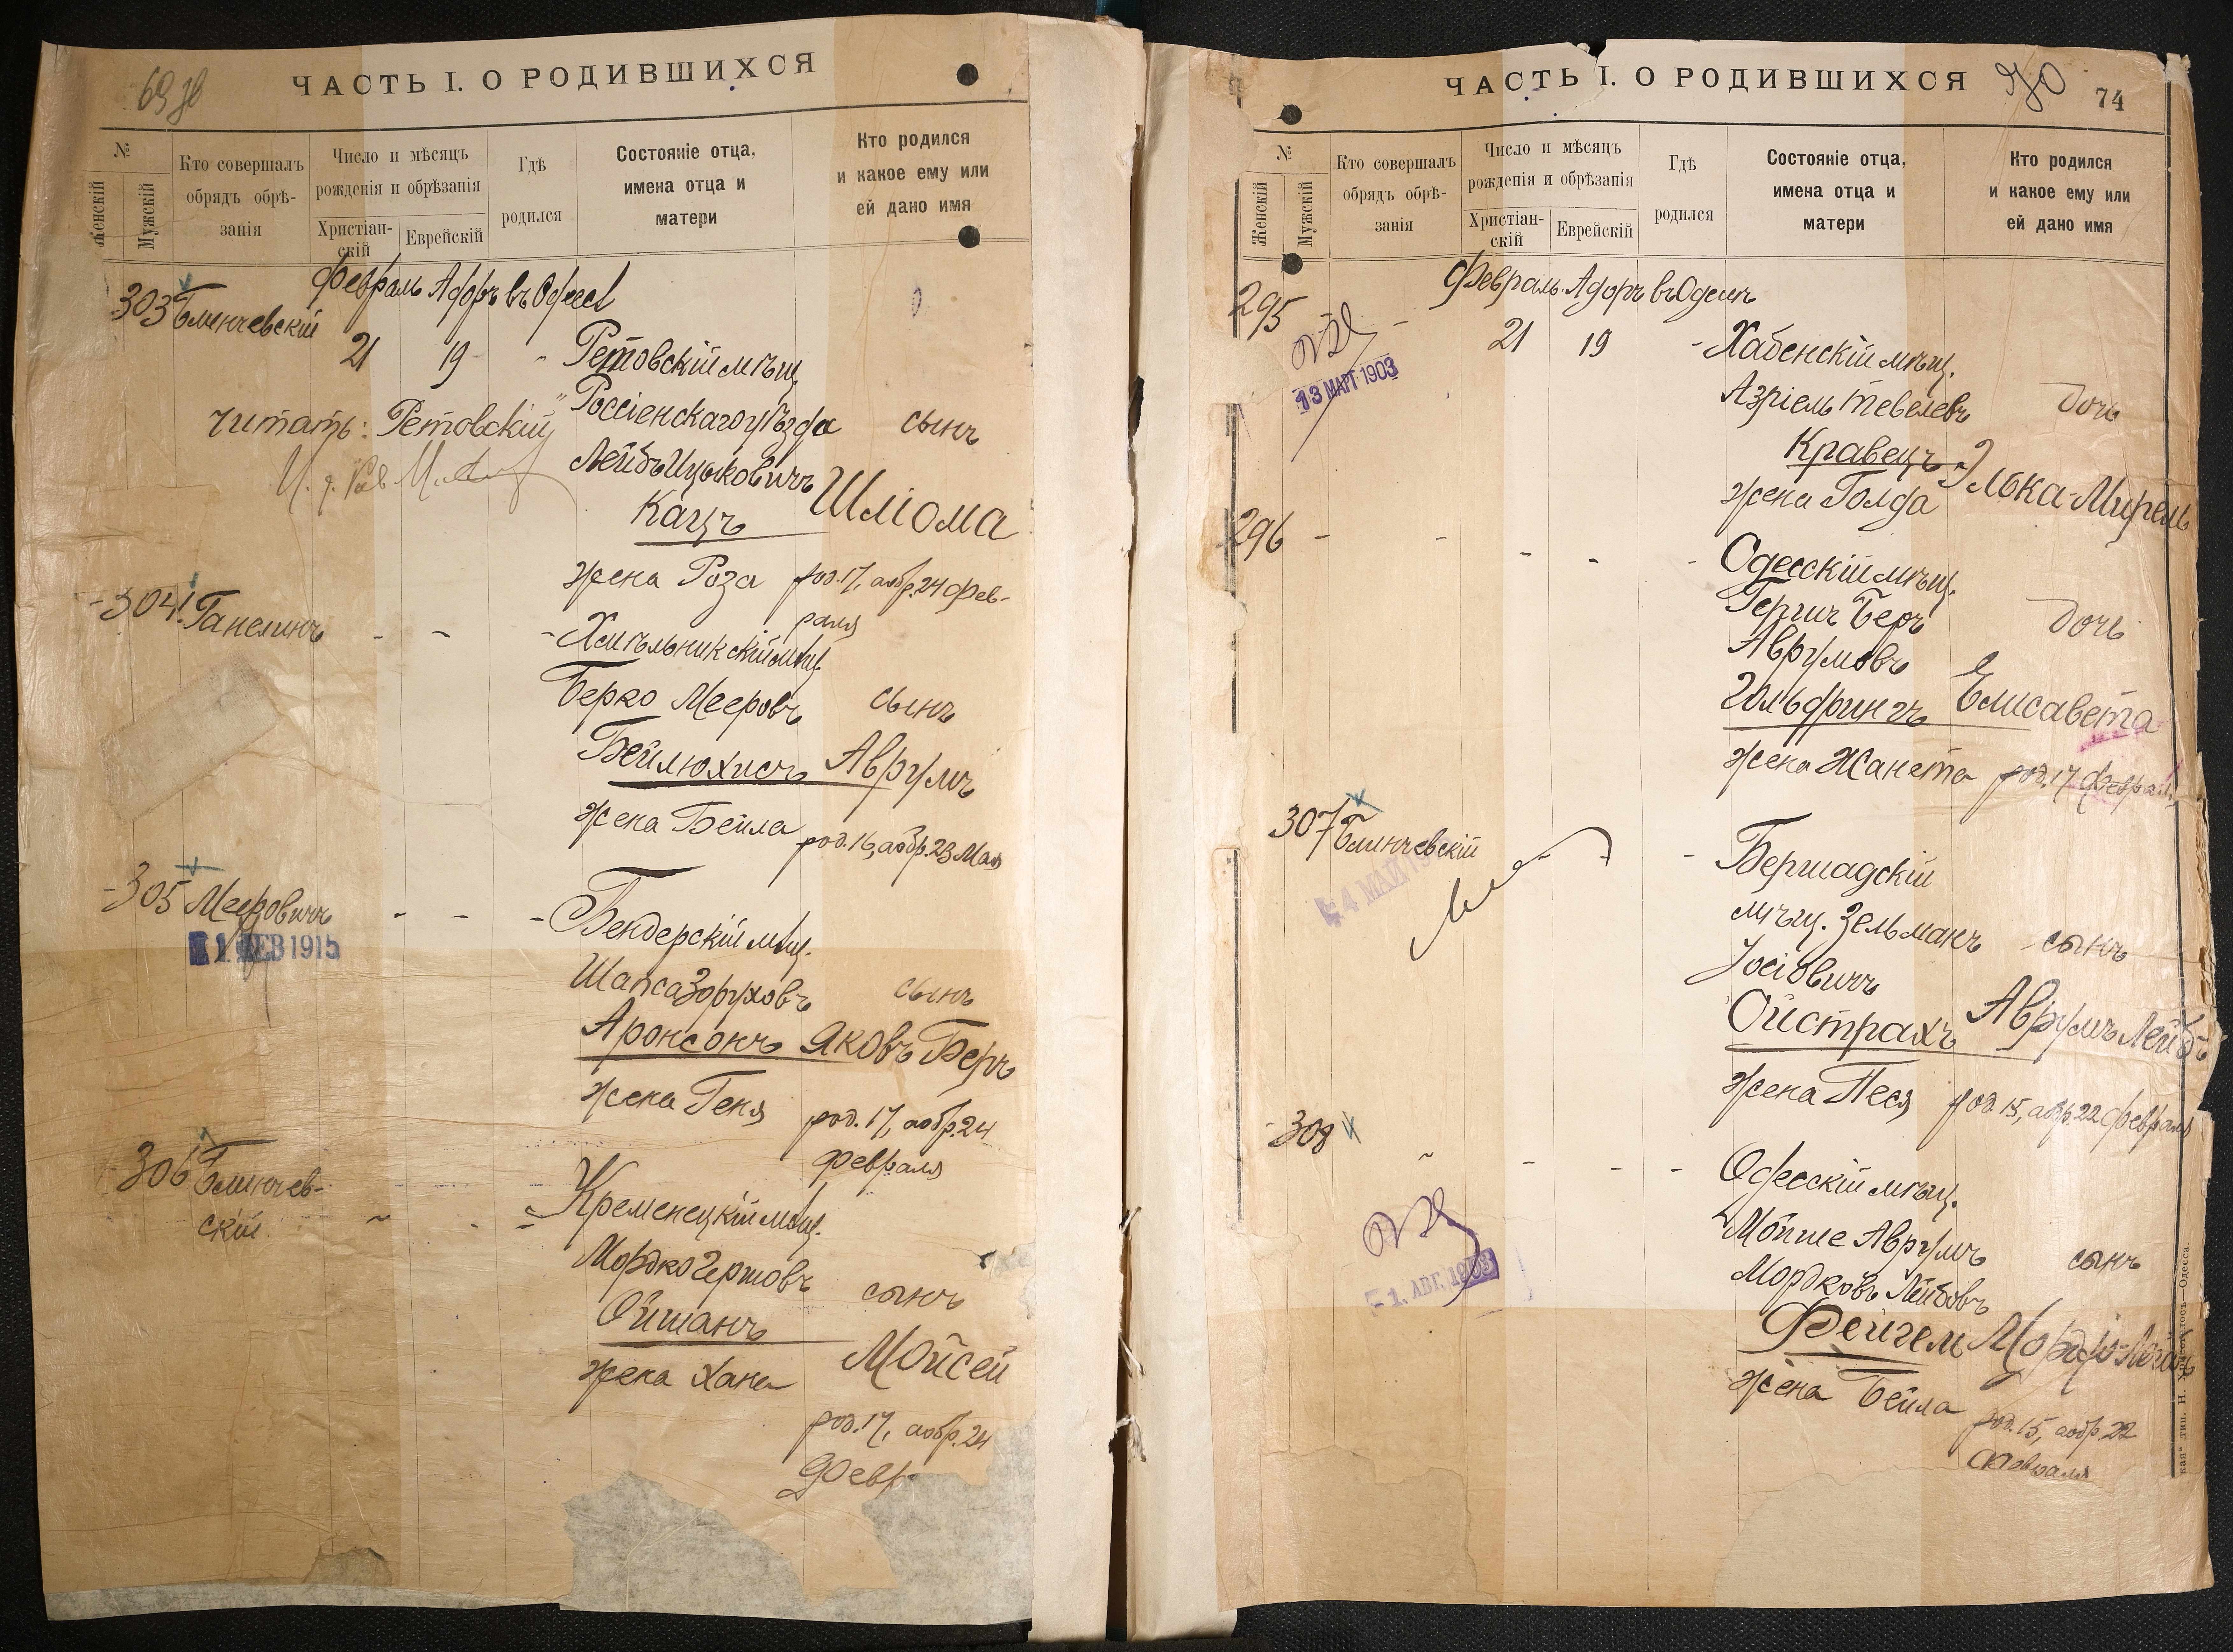 69
ЧАСТЬ I. О РОДИВШИХСЯ
№
Женскій
Мужскій
Кто совершалъ
обрядъ обрѣ-
занія
Число и мѣсяцъ
рожденія и обрѣзанія
Христіан-
скій
Еврейскій
Гдѣ
родился
Состояніе отца,
имена отца и
матери
Кто родился
и какое ему или
ей дано имя
Февраль Адаръ въ Одессѣ
303 Блинчевскій
21 19 - Ретовскій мѣщ.
Россіенскаго уѣзда сынъ
читать: Ретовскій
Лейбъ Ицковичъ Шліома
Кацъ
жена Роза род. 17, а обр. 24 фев-
раля
304 Ганелинъ
Хмѣльникскій мѣщ.
Берко Мееровъ сынъ
Бейлюхисъ Аврумъ
жена Бейла род. 16, а обр. 23 Мая
305 Меeровичъ
1915
Бендерскій мѣщ.
Шапса Зоруховъ сынъ
Аронсонъ Яковъ Беръ
жена Геня род. 17, а обр. 24
февраля
306 Блинчев-
скій
Кременецкій мѣщ.
Мордко Гершовъ сынъ
Ойшанъ
Мойсей
жена Хана
род. 17, а обр. 24
Февр
ЧАСТЬ I. О РОДИВШИХСЯ
70
74
№
Женскій
Мужскій
Кто совершалъ
обрядъ обрѣ-
занія
Число и мѣсяцъ
рожденія и обрѣзанія
Христіан-
скій
Еврейскій
Гдѣ
родился
Состояніе отца,
имена отца и
матери
Кто родился
и какое ему или
ей дано имя
Февраль Адаръ въ Одессѣ
295
21 19 - Хабенскій мѣщ.
13 МАРТ 1903
Азріель Тевелевъ дочь
Кравецъ Элька-Мирель
жена Голда
296 - Одесскій мѣщ.
Гершъ Беръ дочь
Аврумовъ
Гольдрингъ Елисавета
жена Жанета род. 17 феврал
307 Блинчевскій
4 МАЙ
Бершадскій
мѣщ. Зельманъ сынъ
Іосіовичъ
Ойстрахъ Аврумъ Лейбъ
жена Песя род. 15, а обр. 22 февраля
308
Одесскій мѣщ.
Мойше Аврумъ сынъ
Мордковъ Лейбовъ
1. АВГ. 1903
Фейгем
жена Бейла род. 15, а обр. 22
февраля